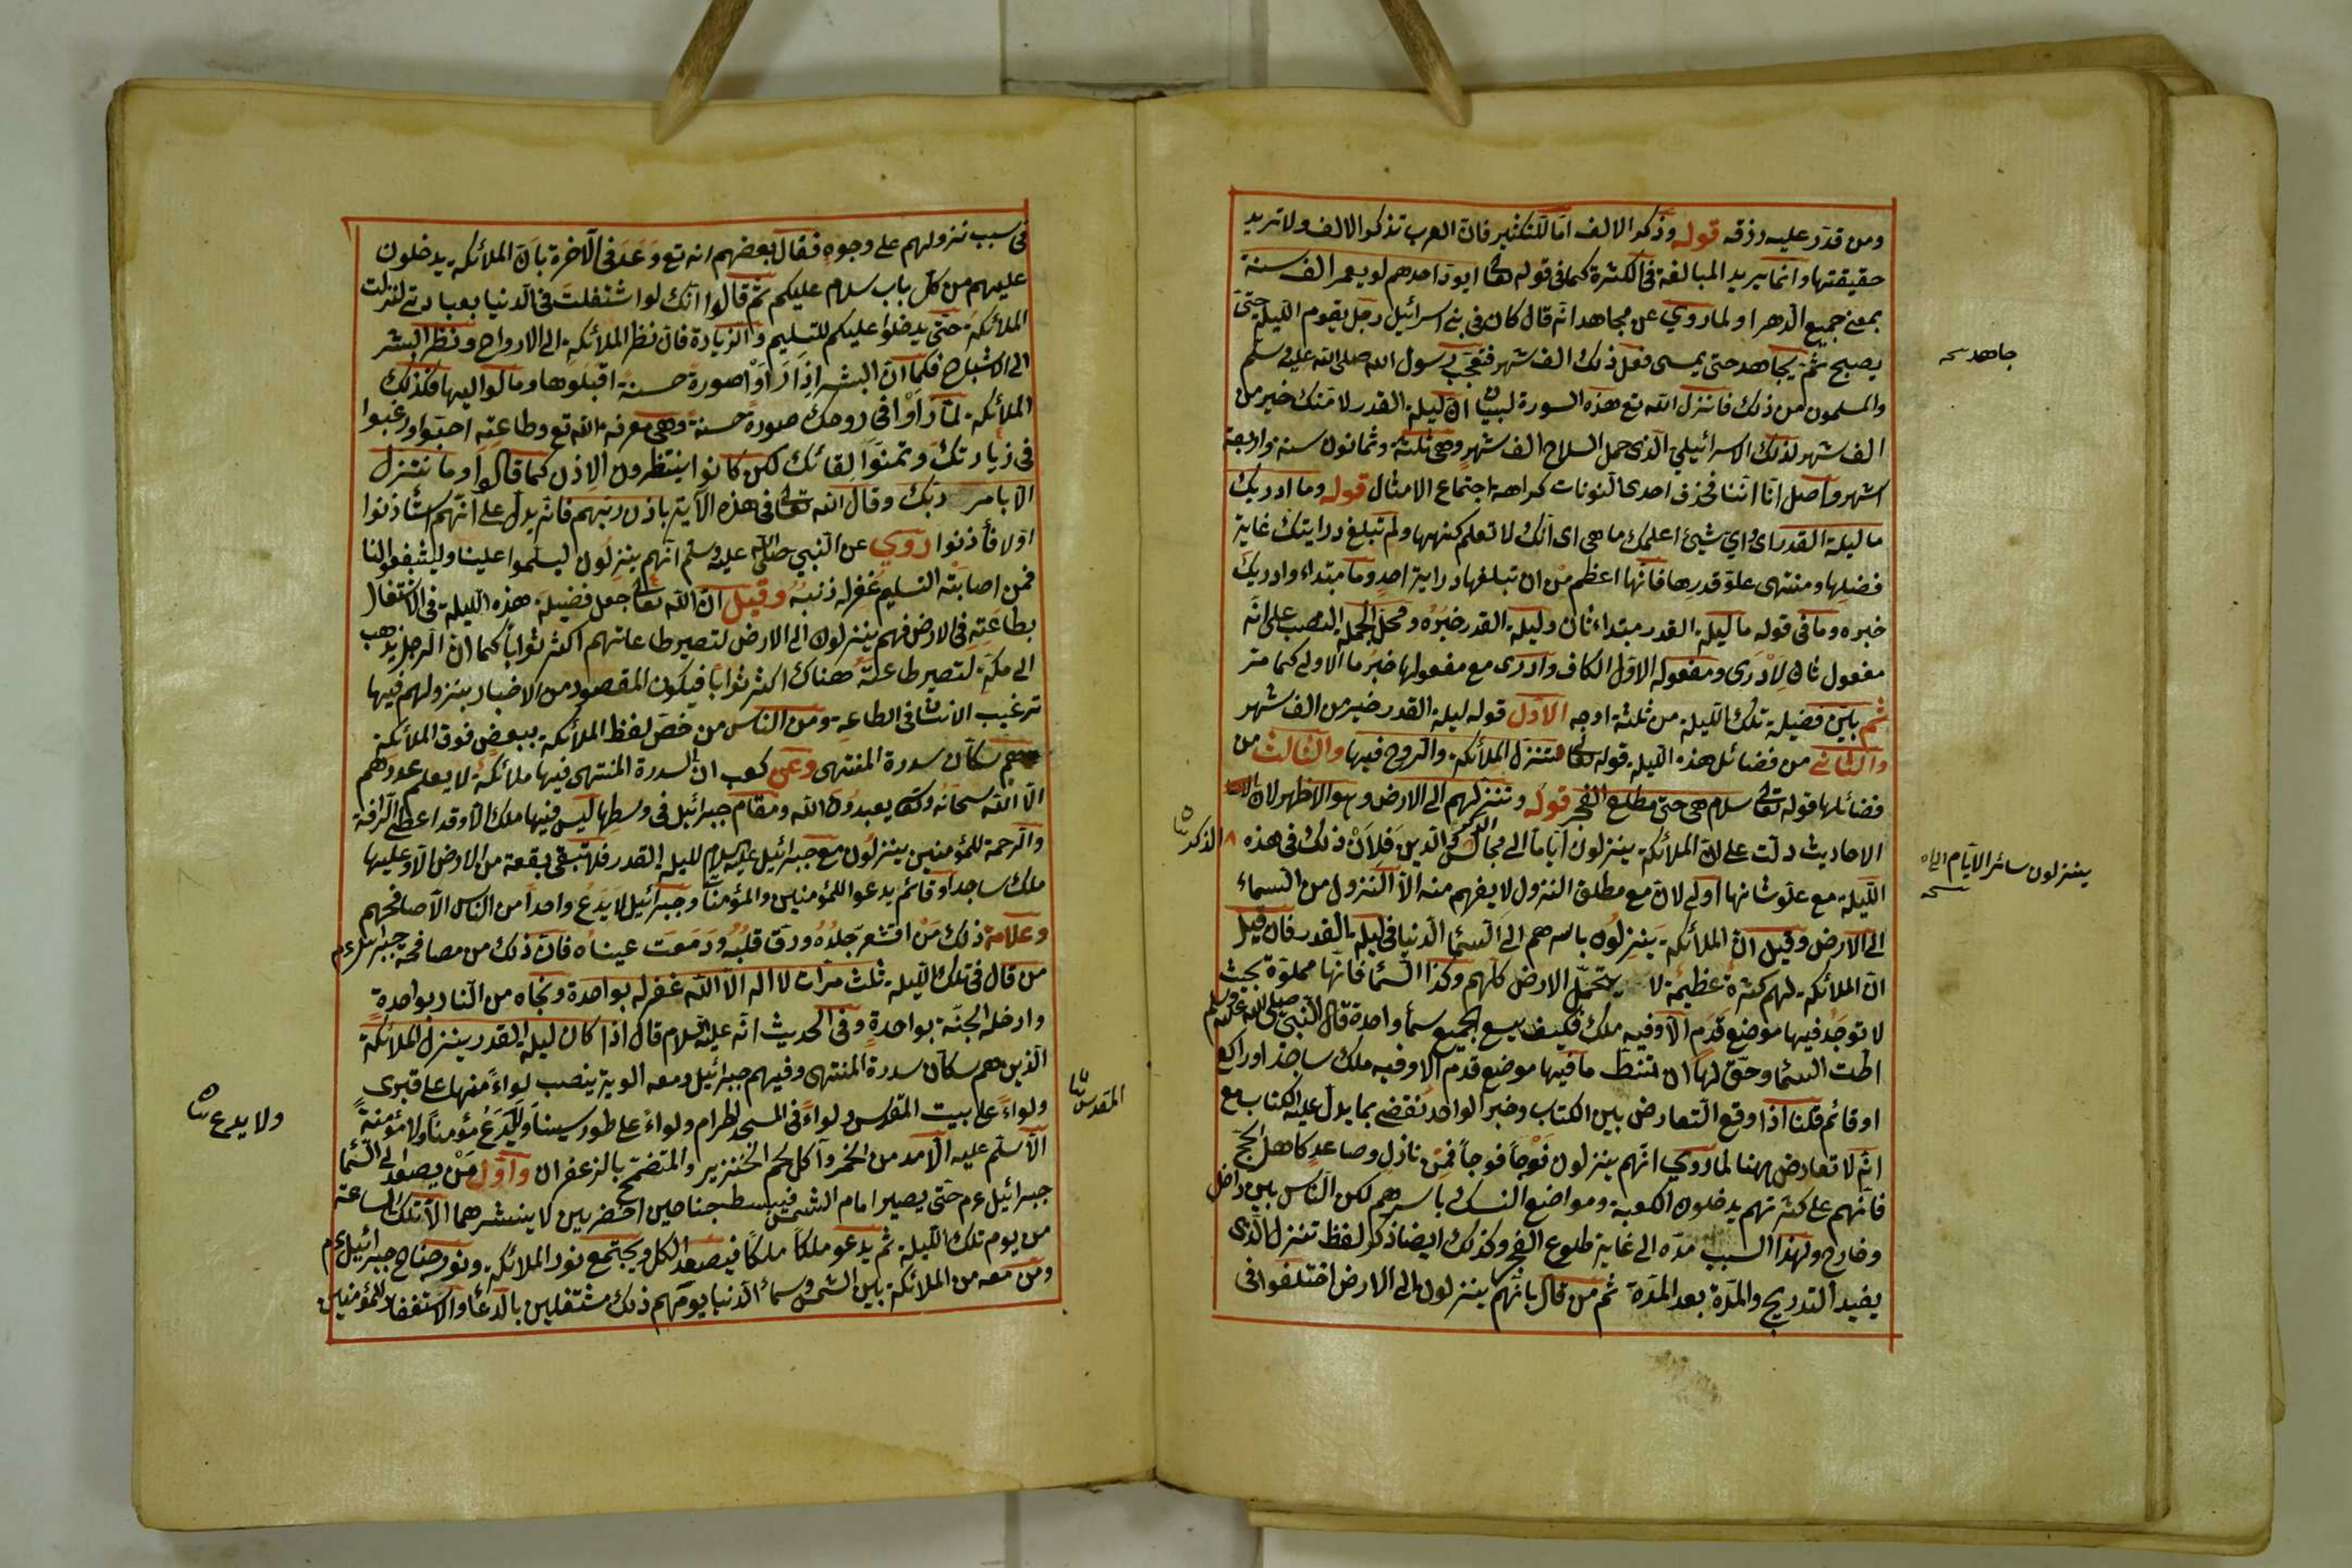 ومن قدر عليه رزقه قوله وذكر الالف اما للتكثير فان العرب تذكر الالف ولا تريد
حقيقتها وانما يريد المبالغة فى الكثرة كما فى قوله تعالى ايود احدهم لو يعمر الف سنة
بمعنى جميع الدهر او لما روي عن مجاهد انه قال كان فى بنى اسرائيل رجل يقوم الليلة حتى
يصبح ثم يجاهد حتى يمسى فعل ذلك الف شهر فتعجب رسول الله صلى الله عليه وسلم
جاهد نسخه
والمسلمون من ذلك فانزل الله تع هذه السورة لبيان ان ليلة القدر لامتك خير من
الف شهر لذلك الاسرائيلي الذى حمل السلاح الف شهر وهى ثلثة وثمانون سنة واربعة
اشهر واصل انا اننا فحذف احدى النونات كراهة اجتماع الامثال قوله وما ادريك
ما ليلة القدر اى واي شيئ اعلمك ما هى اى انك لا تعلم كنهها ولم تبلغ درايتك غاية
فضلها ومنتهى علو قدرها فانها اعظم من ان تبلغها دراية احد وما مبتداء وادريك
خبره وما فى قوله ما ليلة القدر مبتداء ثان وليلة القدر خبره ومحل الجملة النصب على انه
مفعول ثان لادرى ومفعوله الاول الكاف وادرى مع مفعولها خبر ما الاولى كما مر
ثم بين فضيلة تلك الليلة من ثلثة اوجه الاول قوله ليلة القدر خير من الف شهر
والثانى من فضائل هذه الليلة قوله تعالى تنزل الملائكة والروح فيها والثالث من
فضائلها قوله تعالى سلام هى حتى مطلع الفجر قوله وتنزلهم الى الارض وهو الاظهر لان
الاحاديث دلت على ان الملائكة ينزلون اياما الى مجالس الدين فلان ذلك فى هذه
الذكر
ينزلون سائر الايام الى
نسخه
الليلة مع علو شانها اولى لان مع مطلق النزول لا يفهم منه الا النزول من السماء
الى الارض وقيل ان الملائكة ينزلون باسرهم الى السماء الدنيا فى ليلة القدر فان قيل
ان الملائكة لهم كثرة عظيمة لا يتحمل الارض كلهم وكذا السماء فانها مملوة بحيث
لا توجد فيها موضع قدم الا وفيه ملك فكيف يسع الجميع سماء واحدة قال النبي صلى الله عليه وسلم
اطت السماء وحق لها ان تئط ما فيها موضع قدم الا وفيه ملك ساجد او راكع
او قائم قلنا اذا وقع التعارض بين الكتاب وخبر الواحد نقضى بما يدل عليه الكتاب مع
انه لا تعارض ههنا لما روي انهم ينزلون فوجا فوجا فمن نازل وصاعد كاهل الحج
فانهم على كثرتهم يدخلون الكعبة ومواضع النسك باسرهم لكن الناس بين داخل
وخارج ولهذا السبب مده الى غاية طلوع الفجر وكذلك ايضا ذكر لفظ تنزل الذى
يفيد التدريج والمدة بعد المدة ثم من قال بانهم ينزلون الى الارض اختلفوا فى
فى سبب نزولهم على وجوه فقال بعضهم انه تع وعد فى الآخرة بان الملائكة يدخلون
عليهم من كل باب سلام عليكم ثم قالوا انك لو اشتغلت فى الدنيا بعبادتى لنزلت
الملائكة حتى يدخلوا عليكم للتسليم والزيادة فان نظر الملائكة الى الارواح ونظر البشر
الى الاشباح فكما ان البشر اذا رأوا صورة حسنة اقبلوها ومالوا اليها فكذلك
الملائكة لما رأوا فى روحك صورة حسنة وهى معرفة الله تع وطاعته احبوا ورغبوا
فى زيارتك وتمنوا لقائك لكن كانوا ينتظرون الاذن كما قالوا وما نتنزل
الا بامر ربك وقال الله تعالى فى هذه الآية باذن ربهم فانه يدل على انهم استأذنوا
اولا فأذنوا روي عن النبي صلى الله عليه وسلم انهم ينزلون ليسلموا علينا وليشفعوا لنا
فمن اصابته التسليم غفر له ذنبه وقيل ان الله تعالى جعل فضيلة هذه الليلة فى الاشتغال
بطاعته فى الارض فهم ينزلون الى الارض لتصير طاعاتهم اكثر ثوابا كما ان الرجل يذهب
الى مكة لتصير طاعته هناك اكثر ثوابا فيكون المقصود من الاخبار بنزولهم فيها
ترغيب الانسان فى الطاعة ومن الناس من خص لفظ الملائكة ببعض فوق الملائكة
هم سكان سدرة المنتهى وعن كعب ان السدرة المنتهى فيها ملائكة لا يعلم عددهم
الا الله سبحانه وتعالى يعبدون الله ومقام جبرائيل فى وسطها ليس فيها ملك الا وقد اعطى الرأفة
والرحمة للمؤمنين ينزلون مع جبرائيل عليه السلام ليلة القدر فلا تبقى بقعة من الارض الا وعليها
ملك ساجد او قائم يدعو للمؤمنين والمؤمنات وجبرائيل لا يدع واحدا من الناس الا صافحهم
وعلامة ذلك من اقشعر جلده ورق قلبه ودمعت عيناه فان ذلك من مصافحة جبرائيل عم
من قال فى تلك الليلة ثلث مرات لا اله الا الله غفر له بواحدة ونجاه من النار بواحدة
وادخله الجنة بواحدة وفى الحديث انه عليه السلام قال اذا كان ليلة القدر ينزل الملائكة
الذين هم سكان سدرة المنتهى وفيهم جبرائيل ومعه الوية ينصب لواء منها على قبرى
ولواء على بيت المقدس ولواء فى المسجد الحرام ولواء على طور سينا ولا يدع مؤمنا ولا مؤمنة
المقدس
ولا يدع
الا سلم عليه الا مدمن الخمر وآكل لحم الخنزير والمتضمخ بالزعفران واول من يصعد الى السماء
جبرائيل عم حتى يصير امام الشمس فيبسط جناحين اخضرين لا ينشرهما الا تلك الساعة
من يوم تلك الليلة ثم يدعو ملكا ملكا فيصعد الكل ويجتمع نور الملائكة ونور جناح جبرائيل عم
ومن معه من الملائكة بين الشمس وسماء الدنيا يومهم ذلك مشتغلين بالدعاء والاستغفار للمؤمنين